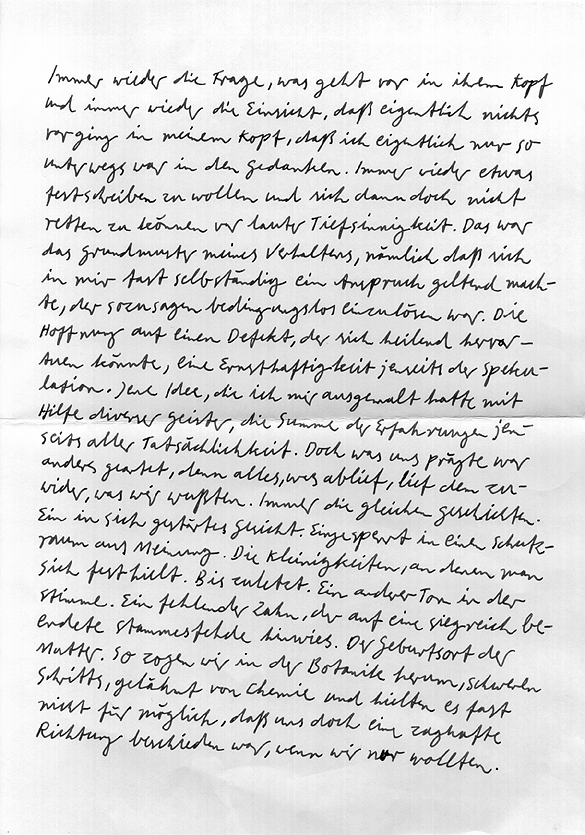 Immer wieder die Frage, was geht vor in ihrem Kopf
und immer wieder die Einsicht, daß eigentlich nichts
vorging in meinem Kopf, daß ich eigentlich nur so
unterwegs war in den Gedanken. Immer wieder etwas
festschreiben zu wollen und sich dann doch nicht
retten zu können vor lauter Tiefsinnigkeit. Das war
das Grundmuster meines Verhaltens, nämlich daß sich
in mir fast selbständig ein Anspruch geltend mach-
te, der sozusagen bedingungslos einzulösen war. Die
Hoffnung auf einen Defekt, der sich heilend hervor-
tuen könnte, eine Ernsthaftigkeit jenseits der Speku-
lation. Jene Idee, die ich mir ausgemalt hatte mit
Hilfe diverser Geister, die Summe der Erfahrungen jen-
seits aller Tatsächlichkeit. Doch was uns prägte war
anders geartet, denn alles, was ablief, lief dem zu-
wider, was wir wußten. Immer die gleichen Geschichten.
Ein in sich gestörtes Gesicht. Eingesperrt in einen Schutz-
raum aus Meinung. Die Kleinigkeiten, an denen man
sich festhielt. Bis zuletzt. Ein anderer Ton in der
Stimme. Ein fehlender Zahn, der auf eine siegreich be-
endete Stammesfehde hinwies. Der Geburtsort der
Mutter. So zogen wir in der Botanik herum, schweren
Schritts, gelähmt von Chemie und hielten es fast
nicht für möglich, daß uns doch eine zaghafte
Richtung beschieden war, wenn wir nur wollten.